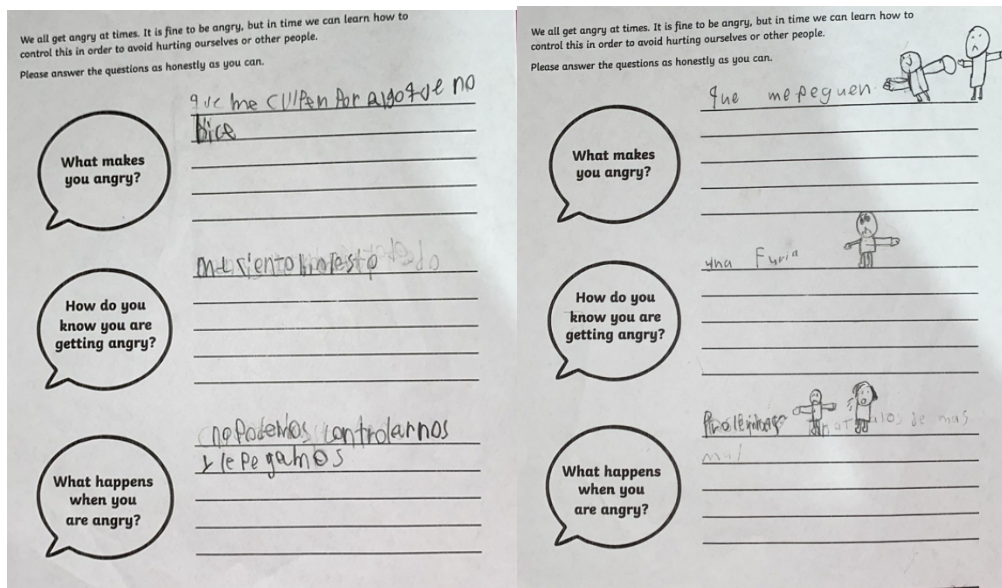 We all get angry at times. It is fine to be angry, but in time we can learn how to
control this in order to avoid hurting ourselves or other people.
Please answer the questions as honestly as you can.
What makes
you angry?
que me culpen por algo que no
hice
How do you
know you are
getting angry?
me siento molesto
What happens
when you
are angry?
no podemos controlarnos
y le pegamos
We all get angry at times. It is fine to be angry, but in time we can learn how to
control this in order to avoid hurting ourselves or other people.
Please answer the questions as honestly as you can.
What makes
you angry?
que me peguen
How do you
know you are
getting angry?
una Furia
What happens
when you
are angry?
Problemas